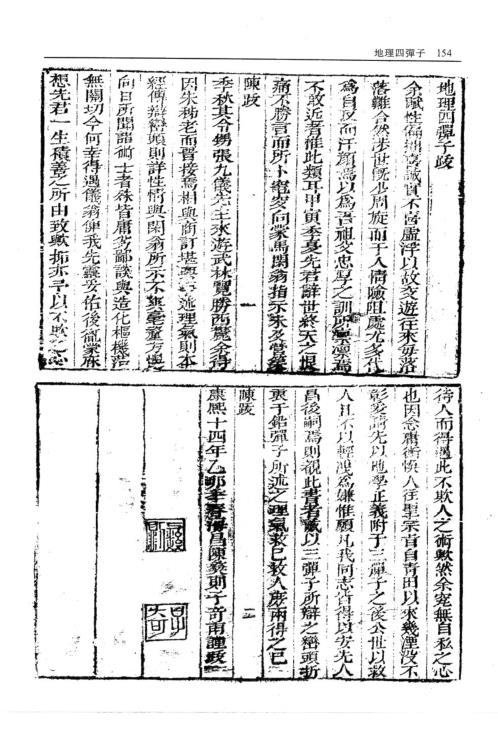 地理四彈子　154
地理四彈子跋
余賦性偏拙寫誠實不啻虛浮以故交遊往來每落
落難合然涉世旣少周旋而于人情嶮阻處尤多代
爲自反而汗顏焉以爲吾祖父忠厚之訓所深凜焉
不敢近者惟此類耳甲寅季夏先君辭世終天之恨
痛不勝言而所卜窀穸向蒙馬閑翁指示來冬營葬
季秋其令甥張九儀先生來遊武林覽勝西
因朱秭老而冒接焉相與商訂堪輿 理氣則本
經傳辯巒頭則詳性情與閑翁所示不 毫釐方
向日所聞諸術士者咮皆庸芳鄙談與造化樞機沿
無關切今何幸得遇儀翁使我先靈妥佑後 蒙庥
想先君一生積善之所由致歟抑亦予以不欺之心
陳跋
一
待人而得遇此不欺人之術歟然余寃無自私之心
也因念庸術悞人往聖宗旨自青田以來幾湮没不
彰爰請先以地學正義附于三彈子之後公世以救
人且不以輕洩爲嫌惟願凡我同志皆得以安先人
昌後嗣焉則觀此書者 以三彈子所辯之巒頭折
衷于鉛彈子所述之理氣救已救人 兩得之已
陳跋
二
康熙十四年乙卯季春海昌陳 則予奇甫謹跋